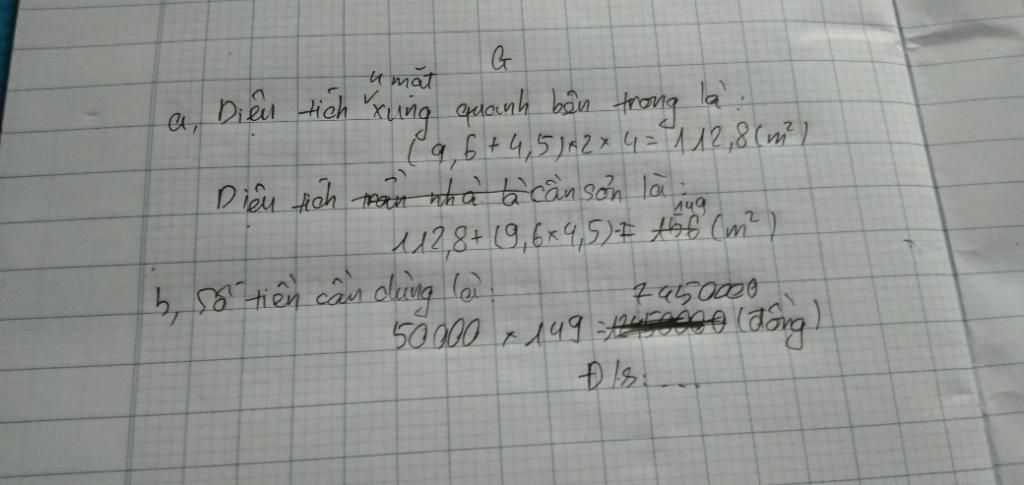 G
4 mặt
a, Diện tích xung quanh bên trong là:
(9,6 + 4,5) × 2 × 4 = 112,8 (m²)
Diện tích trần nhà là cần sơn là:
149
112,8 + (9,6 × 4,5) = 156 (m²)
b, Số tiền cần dùng là:
7450000
50000 × 149 = (đồng)
Đ/s: ....